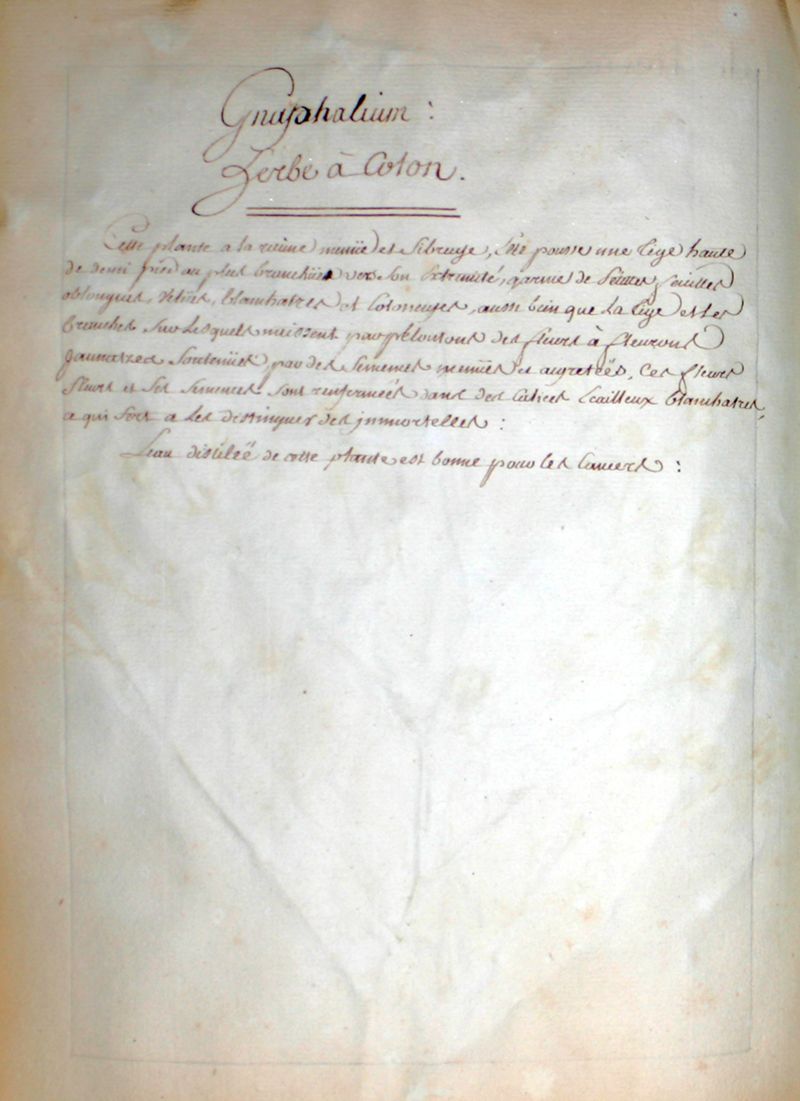 Gnaphalium :
Zerbe à Coton.
Cette plante a la racine menüe et fibreuse, Elle pousse une tige haute
de demi pied au plus branchüe vers son extremité, garnie de petittes feuilles
oblongues, velües, blanchatres et Cotoneuses, aussi bien que la tige et les
branches sur lesquels naissent par plotons des fleurs à fleurons
jaunatres soutenües par des semences menües et aigretées, Ces fleurs
fleurs et Ses semences sont renfermées dans des Calices Ecailleux blanchatres,
ce qui sert a les distinguer des jmmortelles :
Leau distiléé de cette plante est bonne pour les Cancers :